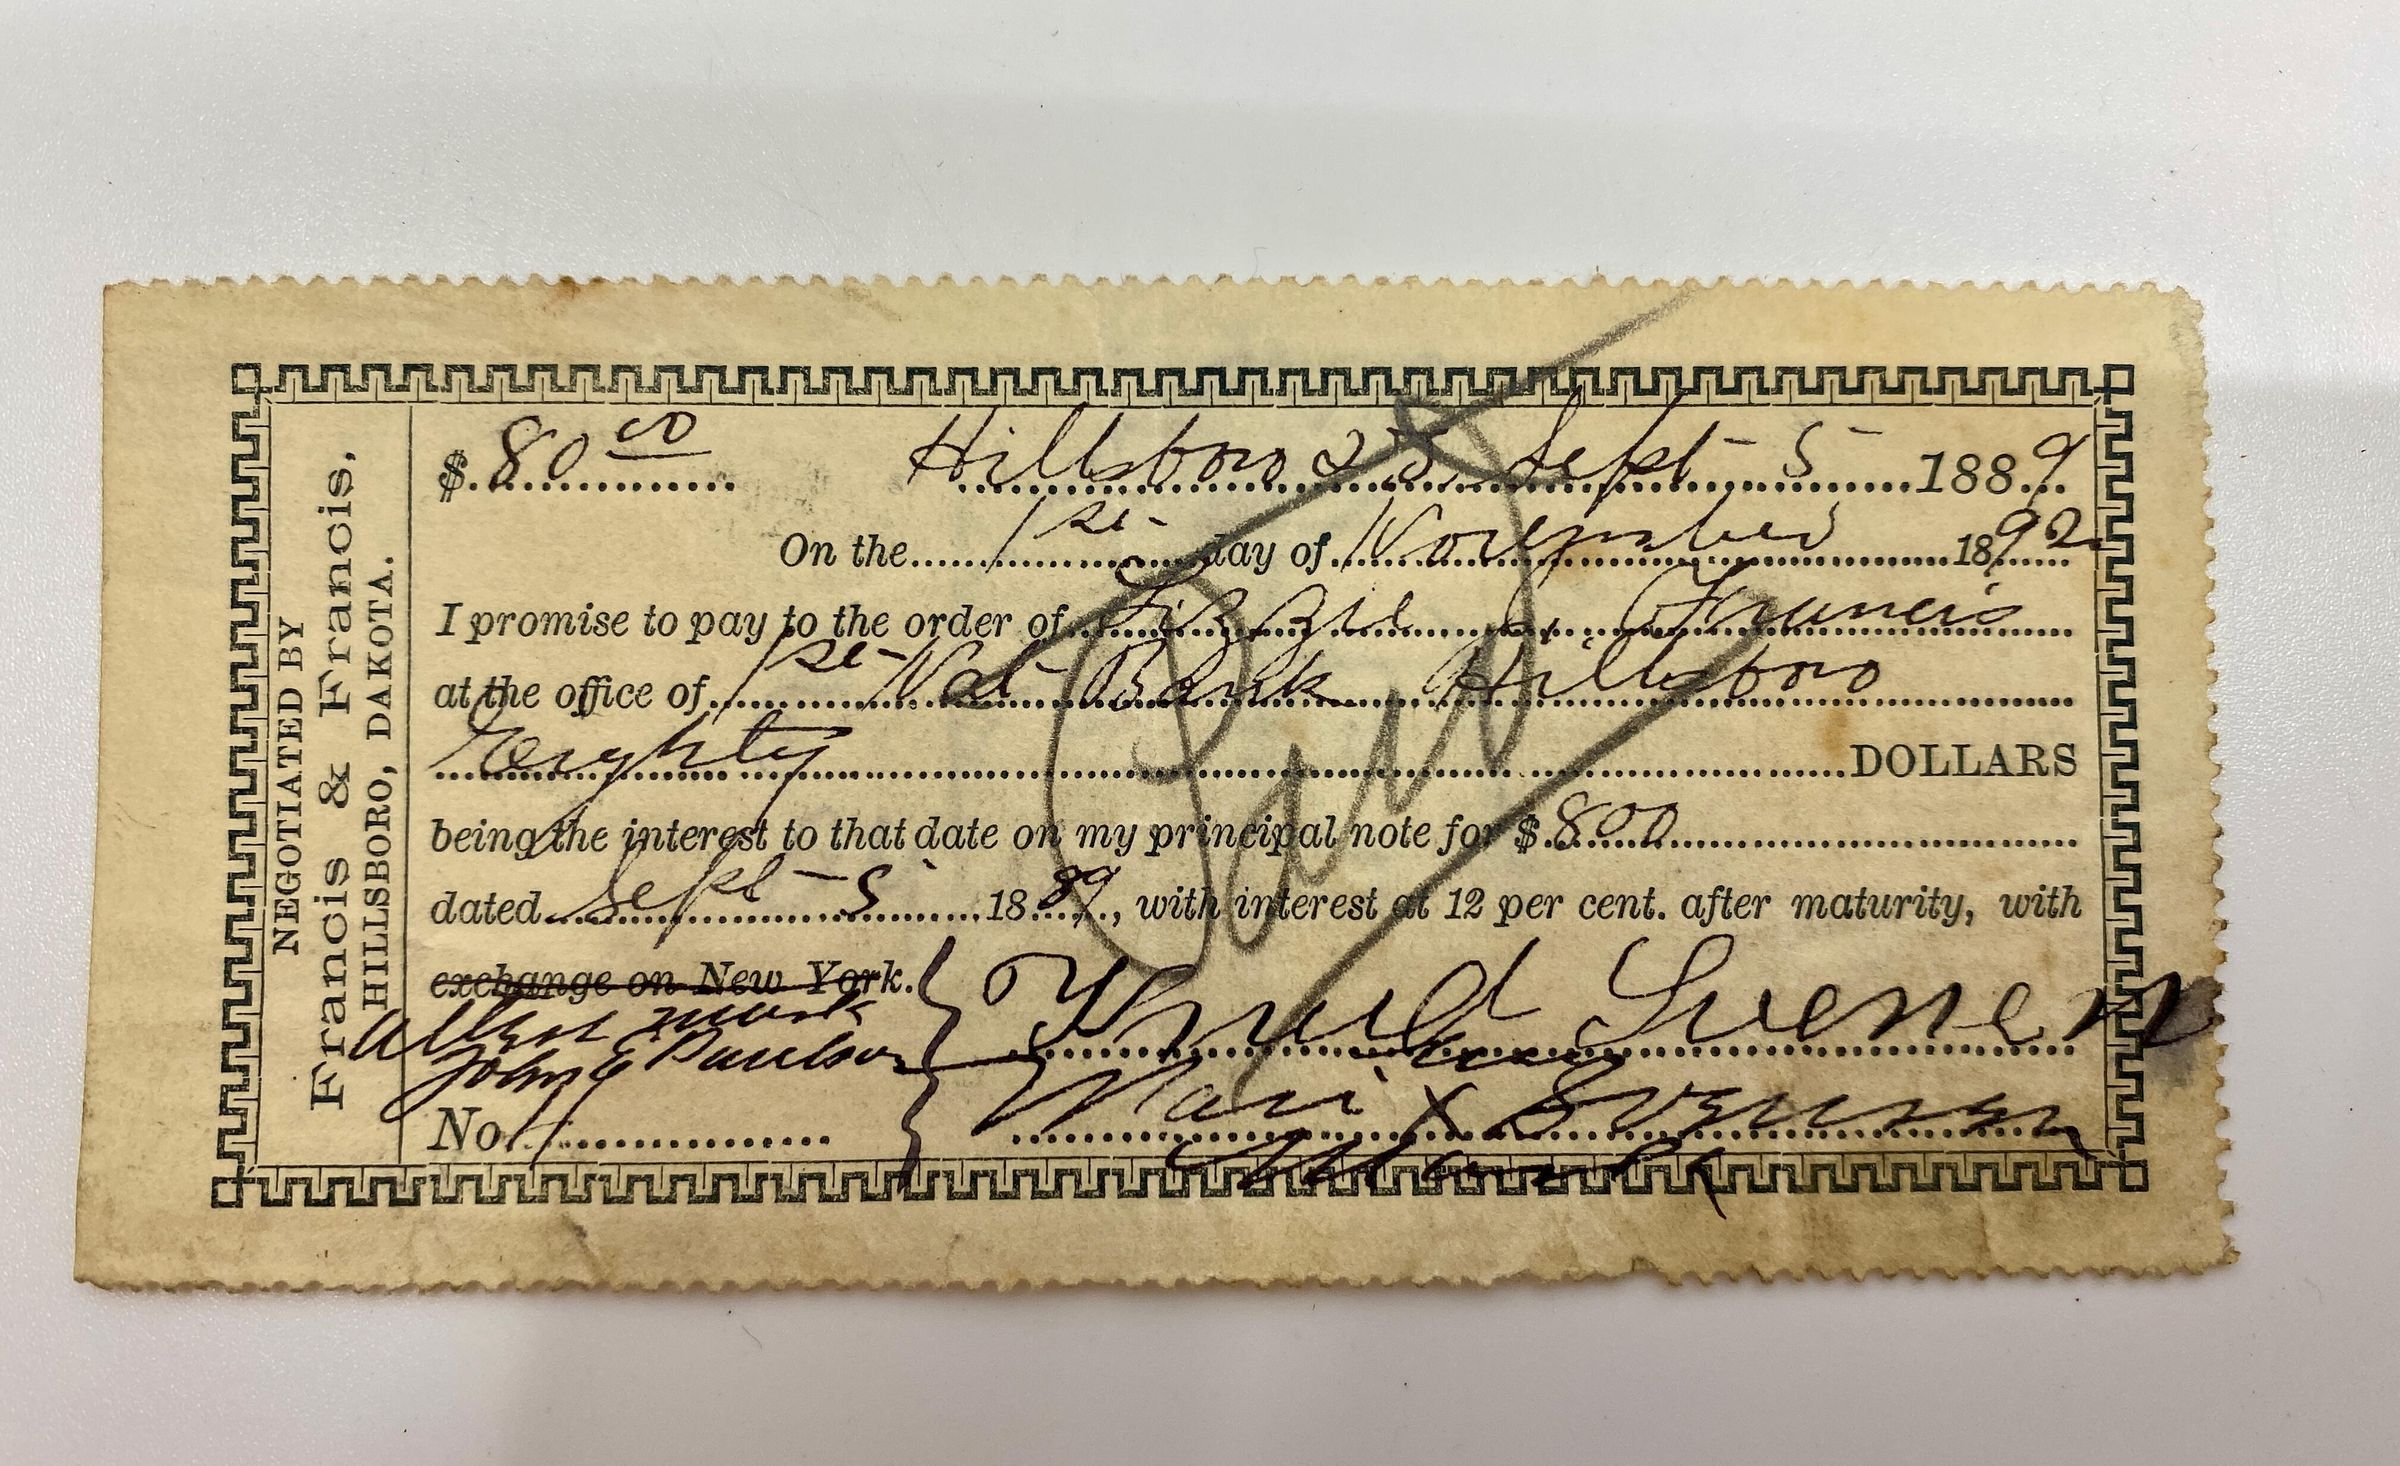 NEGOTIATED BY
Francis & Francis,
HILLSBORO, DAKOTA.
$ 80 00 Hillsboro Sept 5 1889
On the 1st day of November 1892
I promise to pay to the order of Lizzie Francis
at the office of 1st Nat Bank Hillsboro
Eighty DOLLARS
being the interest to that date on my principal note for $ 800
dated Sept 5 1889, with interest at 12 per cent. after maturity, with
exchange on New York.
Paid
Knud Svensen
mark
John E Paulson
her
Mari X Svensen
No
mark